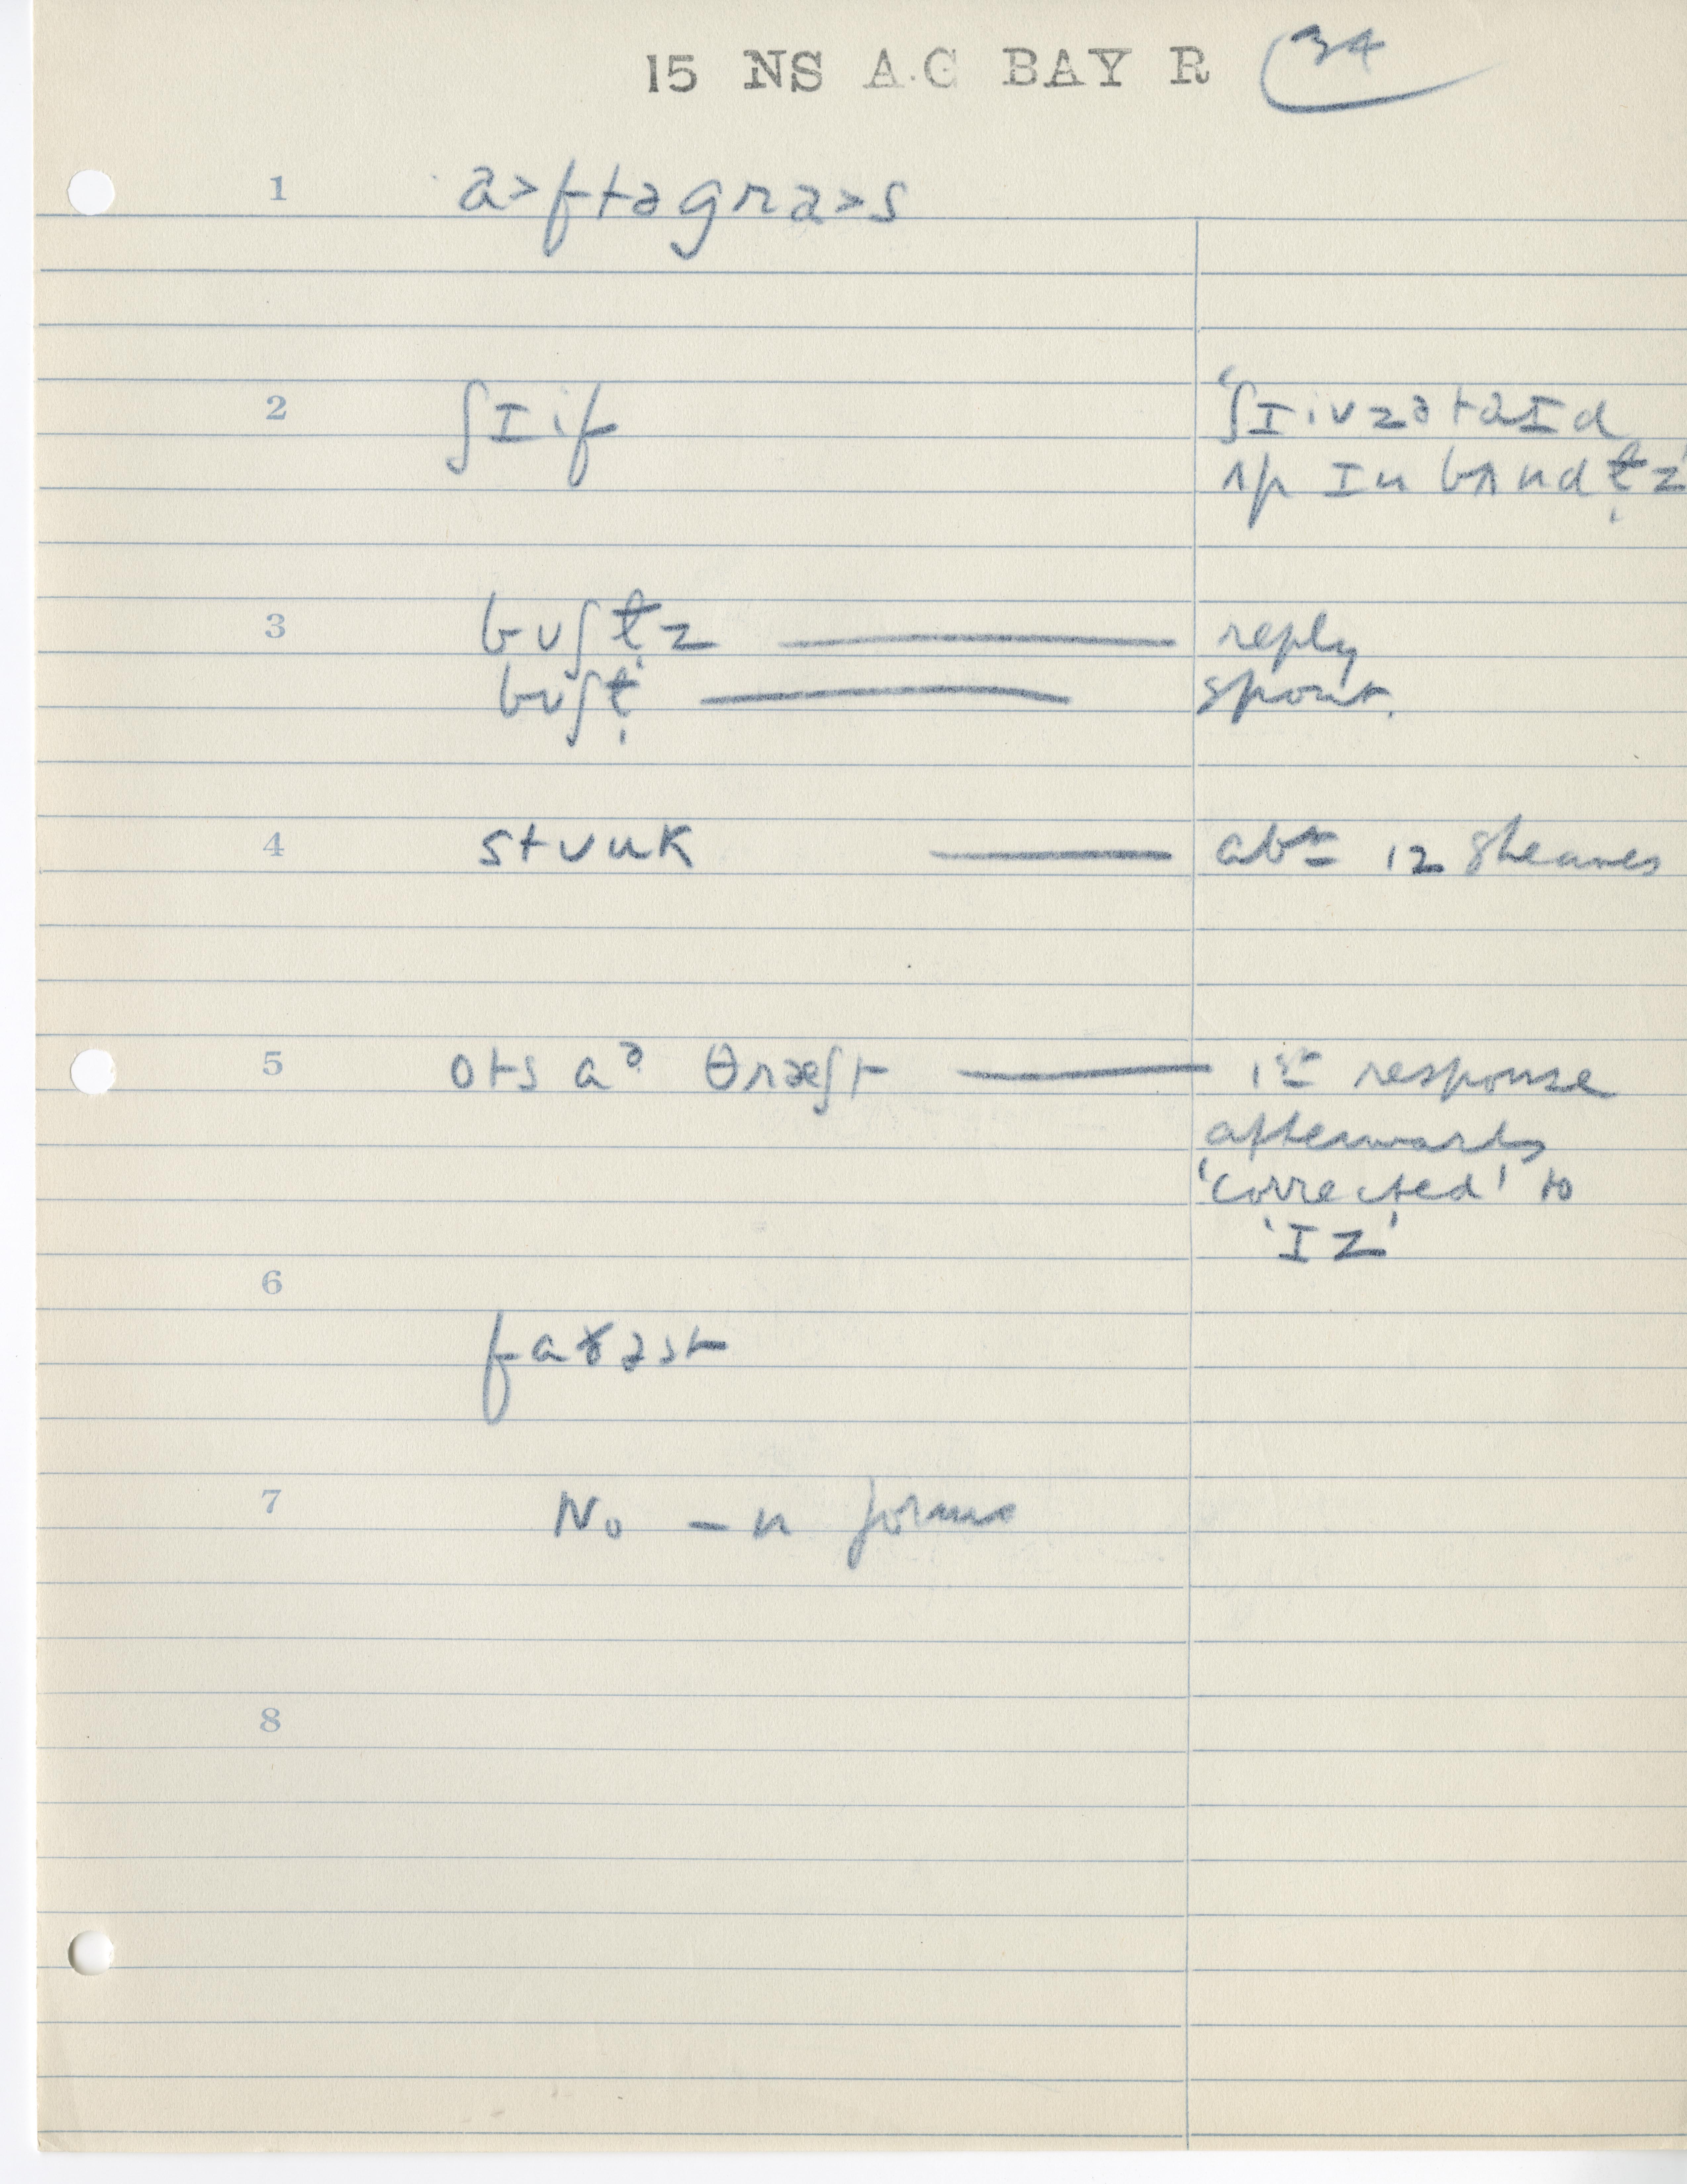 15 NS A.C BAY R 34
1 a>ftəgra>s
2 ʃɪif 'ʃɪivz ə taɪd
ʌp ɪn bʌndl̩z'
3 bʊʃl̩z — reply
bʊʃl̩ — spont.
4 stʊuk — abt 12 sheaves
5 ots aᵊ θræʃt — 1st response
afterwards
'corrected' to
'ɪz'
6
faɤəst
7 No -n forms
8